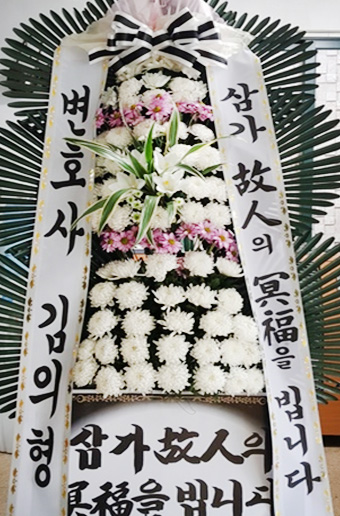 변호사 김의형
삼가 故人의 冥福을 빕니다
삼가 故人의
冥福을 빕니다